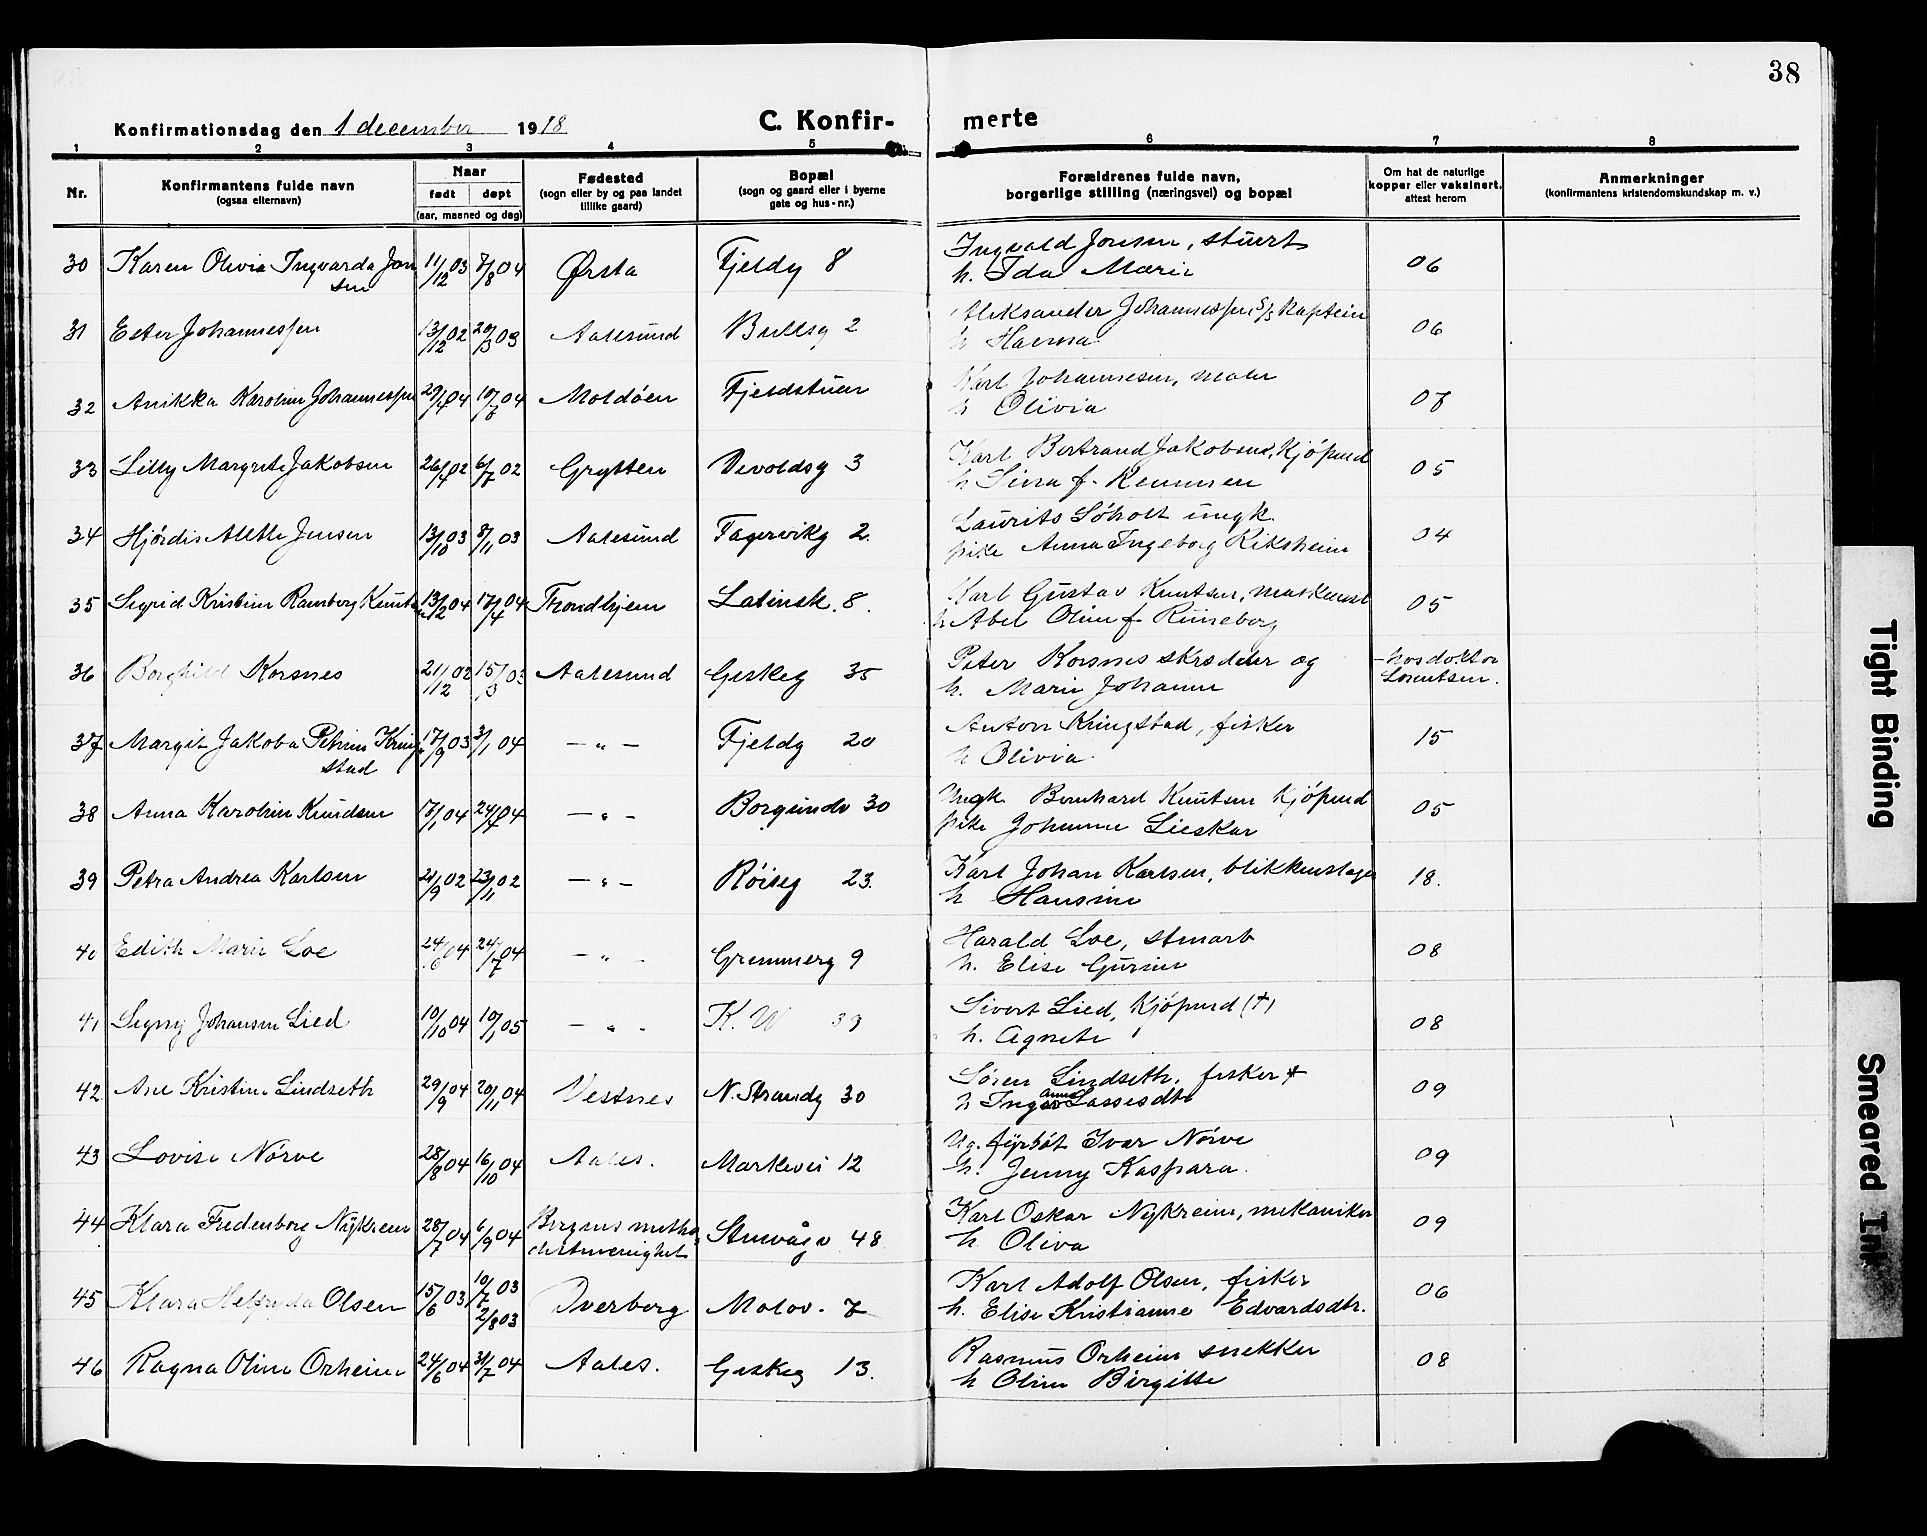 38
Konfirmationsdag den 1 december 1918 C. Konfirmerte
1 2 3 4 5 6 7 8
Nr. Konfirmantens fulde navn (ogsaa efternavn) Naar født døpt (aar, maaned og dag) Fødested (sogn eller by og paa landet tillike gaard) Bopæl (sogn og gaard eller i byerne gate og hus-nr.) Forældrenes fulde navn, borgerlige stilling (næringsvei) og bopæl Om hat de naturlige kopper eller vaksinert, attest herom Anmerkninger (konfirmantens kristendomskundskap m. v.)
30 Karen Olivia Ingvarda Jon 11/12 03 7/8 04 Ørsta Fjeldg 8 Ingvald Jonsen, stuert 06
sen h. Ida Marie
31 Ester Johannessen 13/12 02 29/3 03 Aalesund Bullsg 2 Aleksander Johannessen, S/S Kaptein 06
h Hanna
32 Anikka Karoline Johannessen 29/4 04 10/7 04 Moldöen Fjeldstuen Karl Johannesen, maler 07
h Olivia
33 Lilly Margrete Jakobsen 26/4 02 6/7 02 Grytten Devoldsg 3 Karl Bertrand Jakobsen, Kjöpmd 05
h Sina f.
34 Hjördis Alette Jensen 13/10 03 8/11 03 Aalesund Fagervikg 2. Laurits Söholt ungk. 04
pike Anna Ingeborg Riksheim
35 Sigrid Kristine Ramberg Knuts 13/2 04 17/4 04 Trondhjem Latinsk. 8. Karl Gustav Knutsen, maskinist 05
en h Abel Oline f Runeborg
36 Borghild Korsnes 21/12 02 15/3 03 Aalesund Geskeg 35 Peter Korsnes skrædder og - hos doktor
h. Marie Johanne Lorentsen.
37 Margit Jakoba Petrine Kring 17/9 03 3/1 04 — " — Fjeldg 20 Anton Kringstad, fisker 15
stad h Olivia
38 Anna Karoline Knudsen 17/1 04 24/4 04 — " — Borgundv 30 Ungk. Bernhard Knutsen Kjöpmd 05
pike Johanne Lieskar
39 Petra Andrea Karlsen 21/9 02 23/11 02 — " — Röiseg 23. Karl Johan Karlsen, blikkenslager 18.
h Hansine
40 Edith Marie Loe 24/6 04 24/7 04 — " — Grimmerg 9 Harald Loe, stuart 08
h. Elise Gurine
41 Signy Johansen Lied 10/10 04 10/1 05 — " — K. W 39 Sivert Lied, Kjöpmd (†) 08
h. Agnete
42 Ane Kristine Lindseth 29/9 04 20/11 04 Vestnes N. Strandg 30 Sören Lindseth, fisker † 09
h Inger Anne Lassesdtr
43 Lovise Nörve 28/8 04 16/10 04 Aales. Markevei 12 Ug. fyrböt Ivar Nörve 09
h. Jenny Kaspara.
44 Klara Fredenborg Nykreim 28/7 04 6/9 04 Bergens metho Stenvågv 48 Karl Oskar Nykreim, mekaniker 09
distmenighet h. Oliva
45 Klara Helfryda Olsen 15/6 03 10/7 03 Dverberg Molov. 7 Karl Adolf Olsen, fisker 06
2/8 03 h. Elise Kristianne Edvardsdtr.
46 Ragna Oline Orheim 24/6 04 31/7 04 Aales. Geskeg 13. Rasmus Orheim snekker 08
h Oline Birgitte
Tight Binding
Smeared Ink